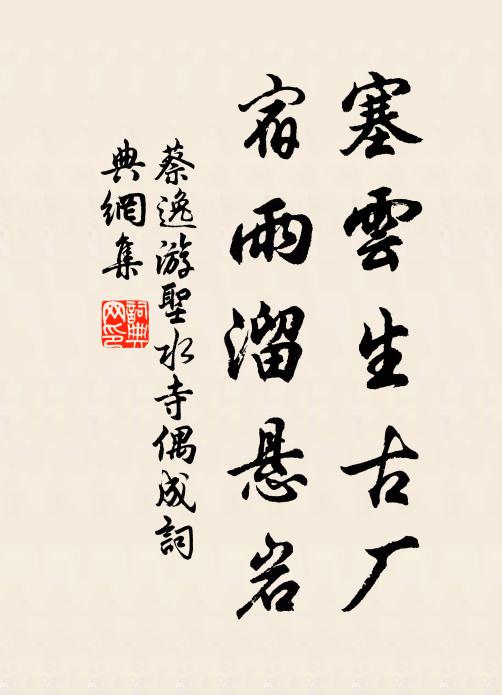 塞雲生古厂
宿雨溜悬岩
蔡逸游聖水寺偶成詞
典網集
詞典
网印